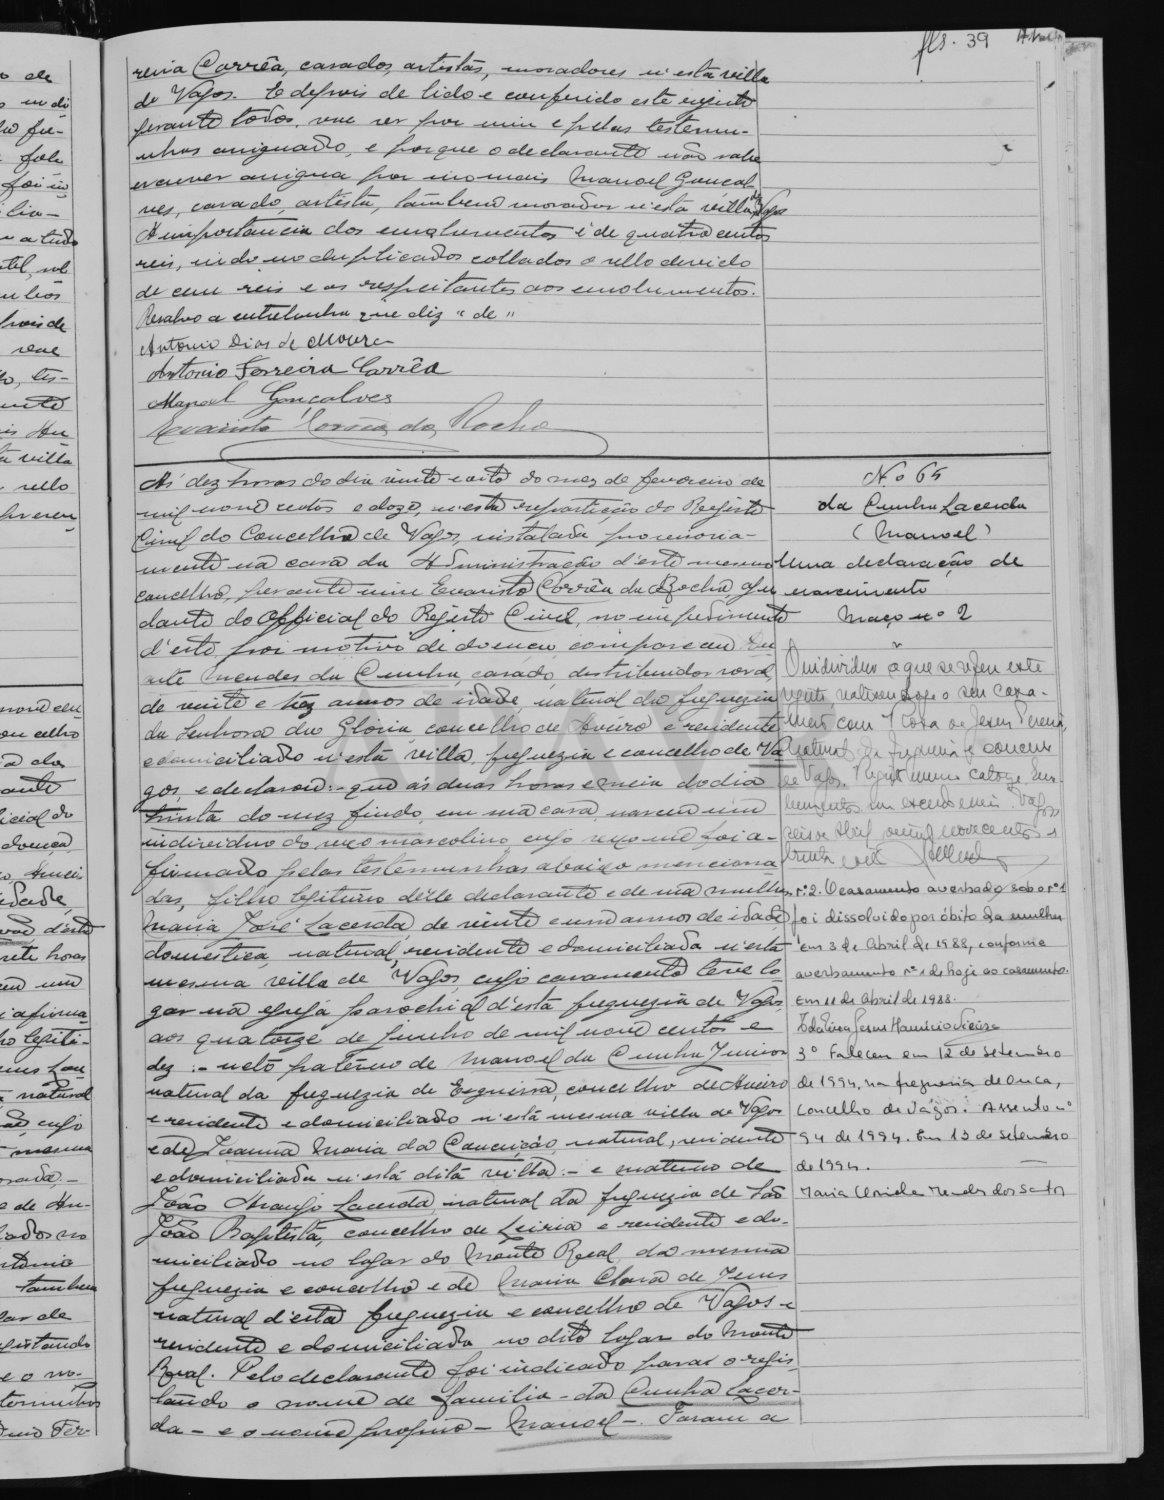 fls. 39
reira Corrêa, casados, artistas, moradores n'esta villa
de Vagos. E depois de lido e conferido este registo
perante todos, vae ser por mim e pelas testemu-
nhas assignado, e porque o declarante não sabe
escrever assigna por elle Manoel Gonçal-
ves, casado, artista, tambem morador n'esta villa de Vagos
A importancia dos emolumentos é de quatro centos
reis, indo no duplicados collados o sello devido
de cem reis e os respeitantes aos emolumentos.
Resalvo a entrelinha que diz "de"
Antonio Dias de Moura
Antonio Ferreira Corrêa
Manoel Gonçalves
Evaristo Corrêa da Rocha
Ás dez horas do dia vinte e oito do mez de fevereiro de
mil nove centos e doze, n'esta repartição do Registo
Civil do Concelho de Vagos, installada provisoria-
mente na casa da Administração d'este mesmo
concelho, perante mim Evaristo Corrêa da Rocha, Aju
dante do Official do Registo Civil, no impedimento
d'este por motivo de doença, compareceu Du
arte Mendes da Cunha, casado, distribuidor rural,
de vinte e tres annos de idade, natural da freguezia
da Senhora da Gloria concelho de Aveiro e residente
e domiciliado n'esta villa, freguezia e concelho de Va
gos, e declarou:- que ás duas horas e meia do dia
trinta do mez findo, em sua casa, nasceu um
individuo do sexo masculino cujo sexo me foi a-
firmado pelas testemunhas abaixo menciona
das, filho legitimo d'elle declarante e de sua mulher
Maria José Lacerda, de vinte e um annos de idade
domestica, natural, residente e domiciliada n'esta
mesma villa de Vagos, cujo casamento teve lo
gar na egreja parochial d'esta freguezia de Vagos,
aos quatorze de Junho de mil nove centos e
dez:- neto paterno de Manoel da Cunha Junior
natural da freguezia de Esgueira, concelho de Aveiro
e residente e domiciliado n'esta mesma villa de Vagos
e de Joanna Maria da Conceição, natural, residente
e domiciliada n'esta dita villa:- e materno de
João Araujo Lacerda, natural da freguezia de São
João Baptista, concelho de Leiria e residente e do-
miciliado no logar do Monte Real, da mesma
freguezia e concelho e de Maria Clara de Jesus
natural d'esta freguezia e concelho de Vagos e
residente e domiciliada no dito logar do Monte
Real. Pelo declarante foi indicado para o regis
tando o nome de familia - da Cunha Lacer-
da - e o nome proprio - Manoel -. Foram a
No 64
da Cunha Lacerda
(Manoel)
Uma declaração de
nascimento
Maço nº 2
O individuo a que se refere este
registo realisou hoje o seu casa-
mento com Rosa de Jesus Pereira,
natural da freguesia e concelho
de Vagos. Registo numero catorze.
Vagos
seis de Abril de mil novecentos e
trinta e
nº2. O casamento averbado sob o nº1
foi dissolvido por óbito da mulher
em 3 de Abril de 1988, conforme
averbamento nº1 de hoje ao casamento.
Em 11 de Abril de 1988.
3º Faleceu em 12 de Setembro
de 1994, na freguesia de Ouca,
concelho de Vagos. Assento nº
94 de 1994. Em 13 de setembro
de 1994.